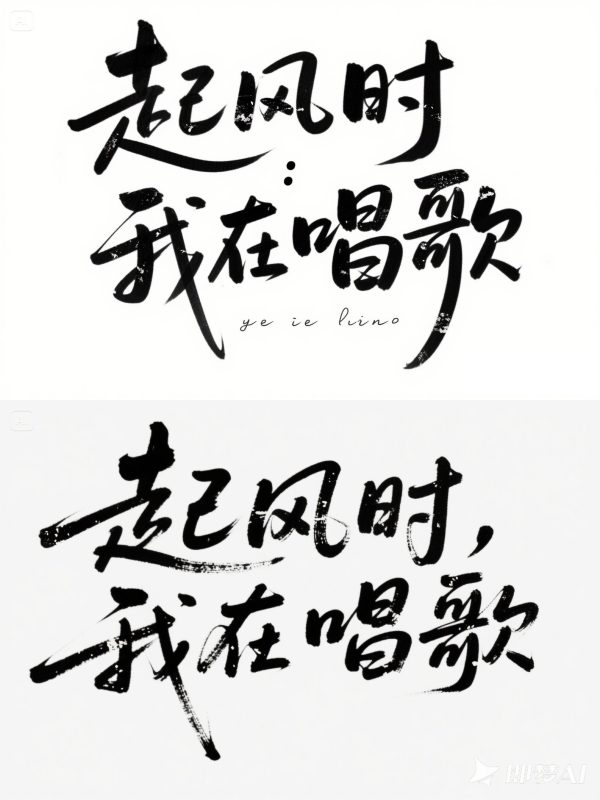 起风时
:
我在唱歌
ye ie lino
起风时,
我在唱歌
即梦AI